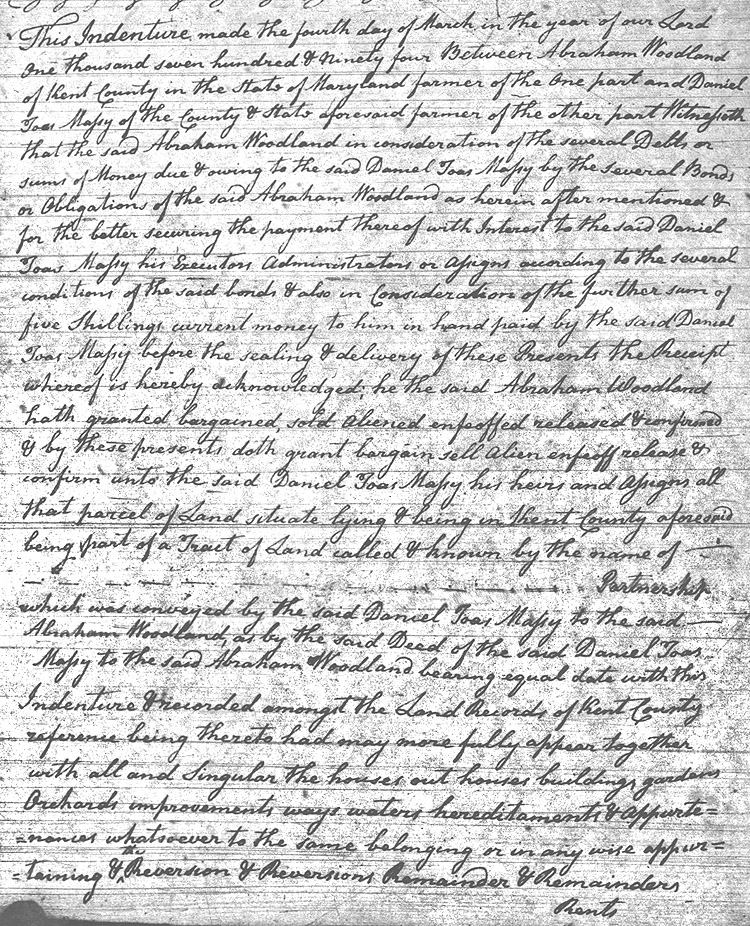 This Indenture made the fourth day of March in the year of our Lord
One thousand seven hundred & Ninety four Between Abraham Woodland
of Kent County in the State of Maryland farmer of the One part and Daniel
Toas Massy of the County & State aforesaid farmer of the other part Witnesseth
that the said Abraham Woodland in consideration of the several Debts or
sums of Money due & owing to the said Daniel Toas Massy by the several Bonds
or Obligations of the said Abraham Woodland as herein after mentioned &
for the better securing the payment thereof with Interest to the said Daniel
Toas Massy his Executors Administrators or Assigns according to the several
conditions of the said bonds & also in Consideration of the further sum of
five Shillings current money to him in hand paid by the said Daniel
Toas Massy before the sealing & delivery of these Presents the Receipt
whereof is hereby acknowledged; he the said Abraham Woodland
hath granted bargained, sold Aliened enfeoffed released & confirmed
& by these presents doth grant bargain sell Alien enfeoff release &
confirm unto the said Daniel Toas Massy his heirs and Assigns all
that parcel of Land situate lying & being in Kent County aforesaid
being part of a Tract of Land called & known by the name of —
Partnership
which was conveyed by the said Daniel Toas Massy to the said —
Abraham Woodland, as by the said Deed of the said Daniel Toas
Massy to the said Abraham Woodland bearing equal date with this
Indenture & recorded amongst the Land Records of Kent County
reference being thereto had may more fully appear together
with all and Singular the houses out houses buildings gardens
Orchards improvements ways waters hereditaments & Appurte=
=nances whatsoever to the same belonging or in any wise appur=
=taining & Reversion & Reversions Remainder & Remainders
Rents